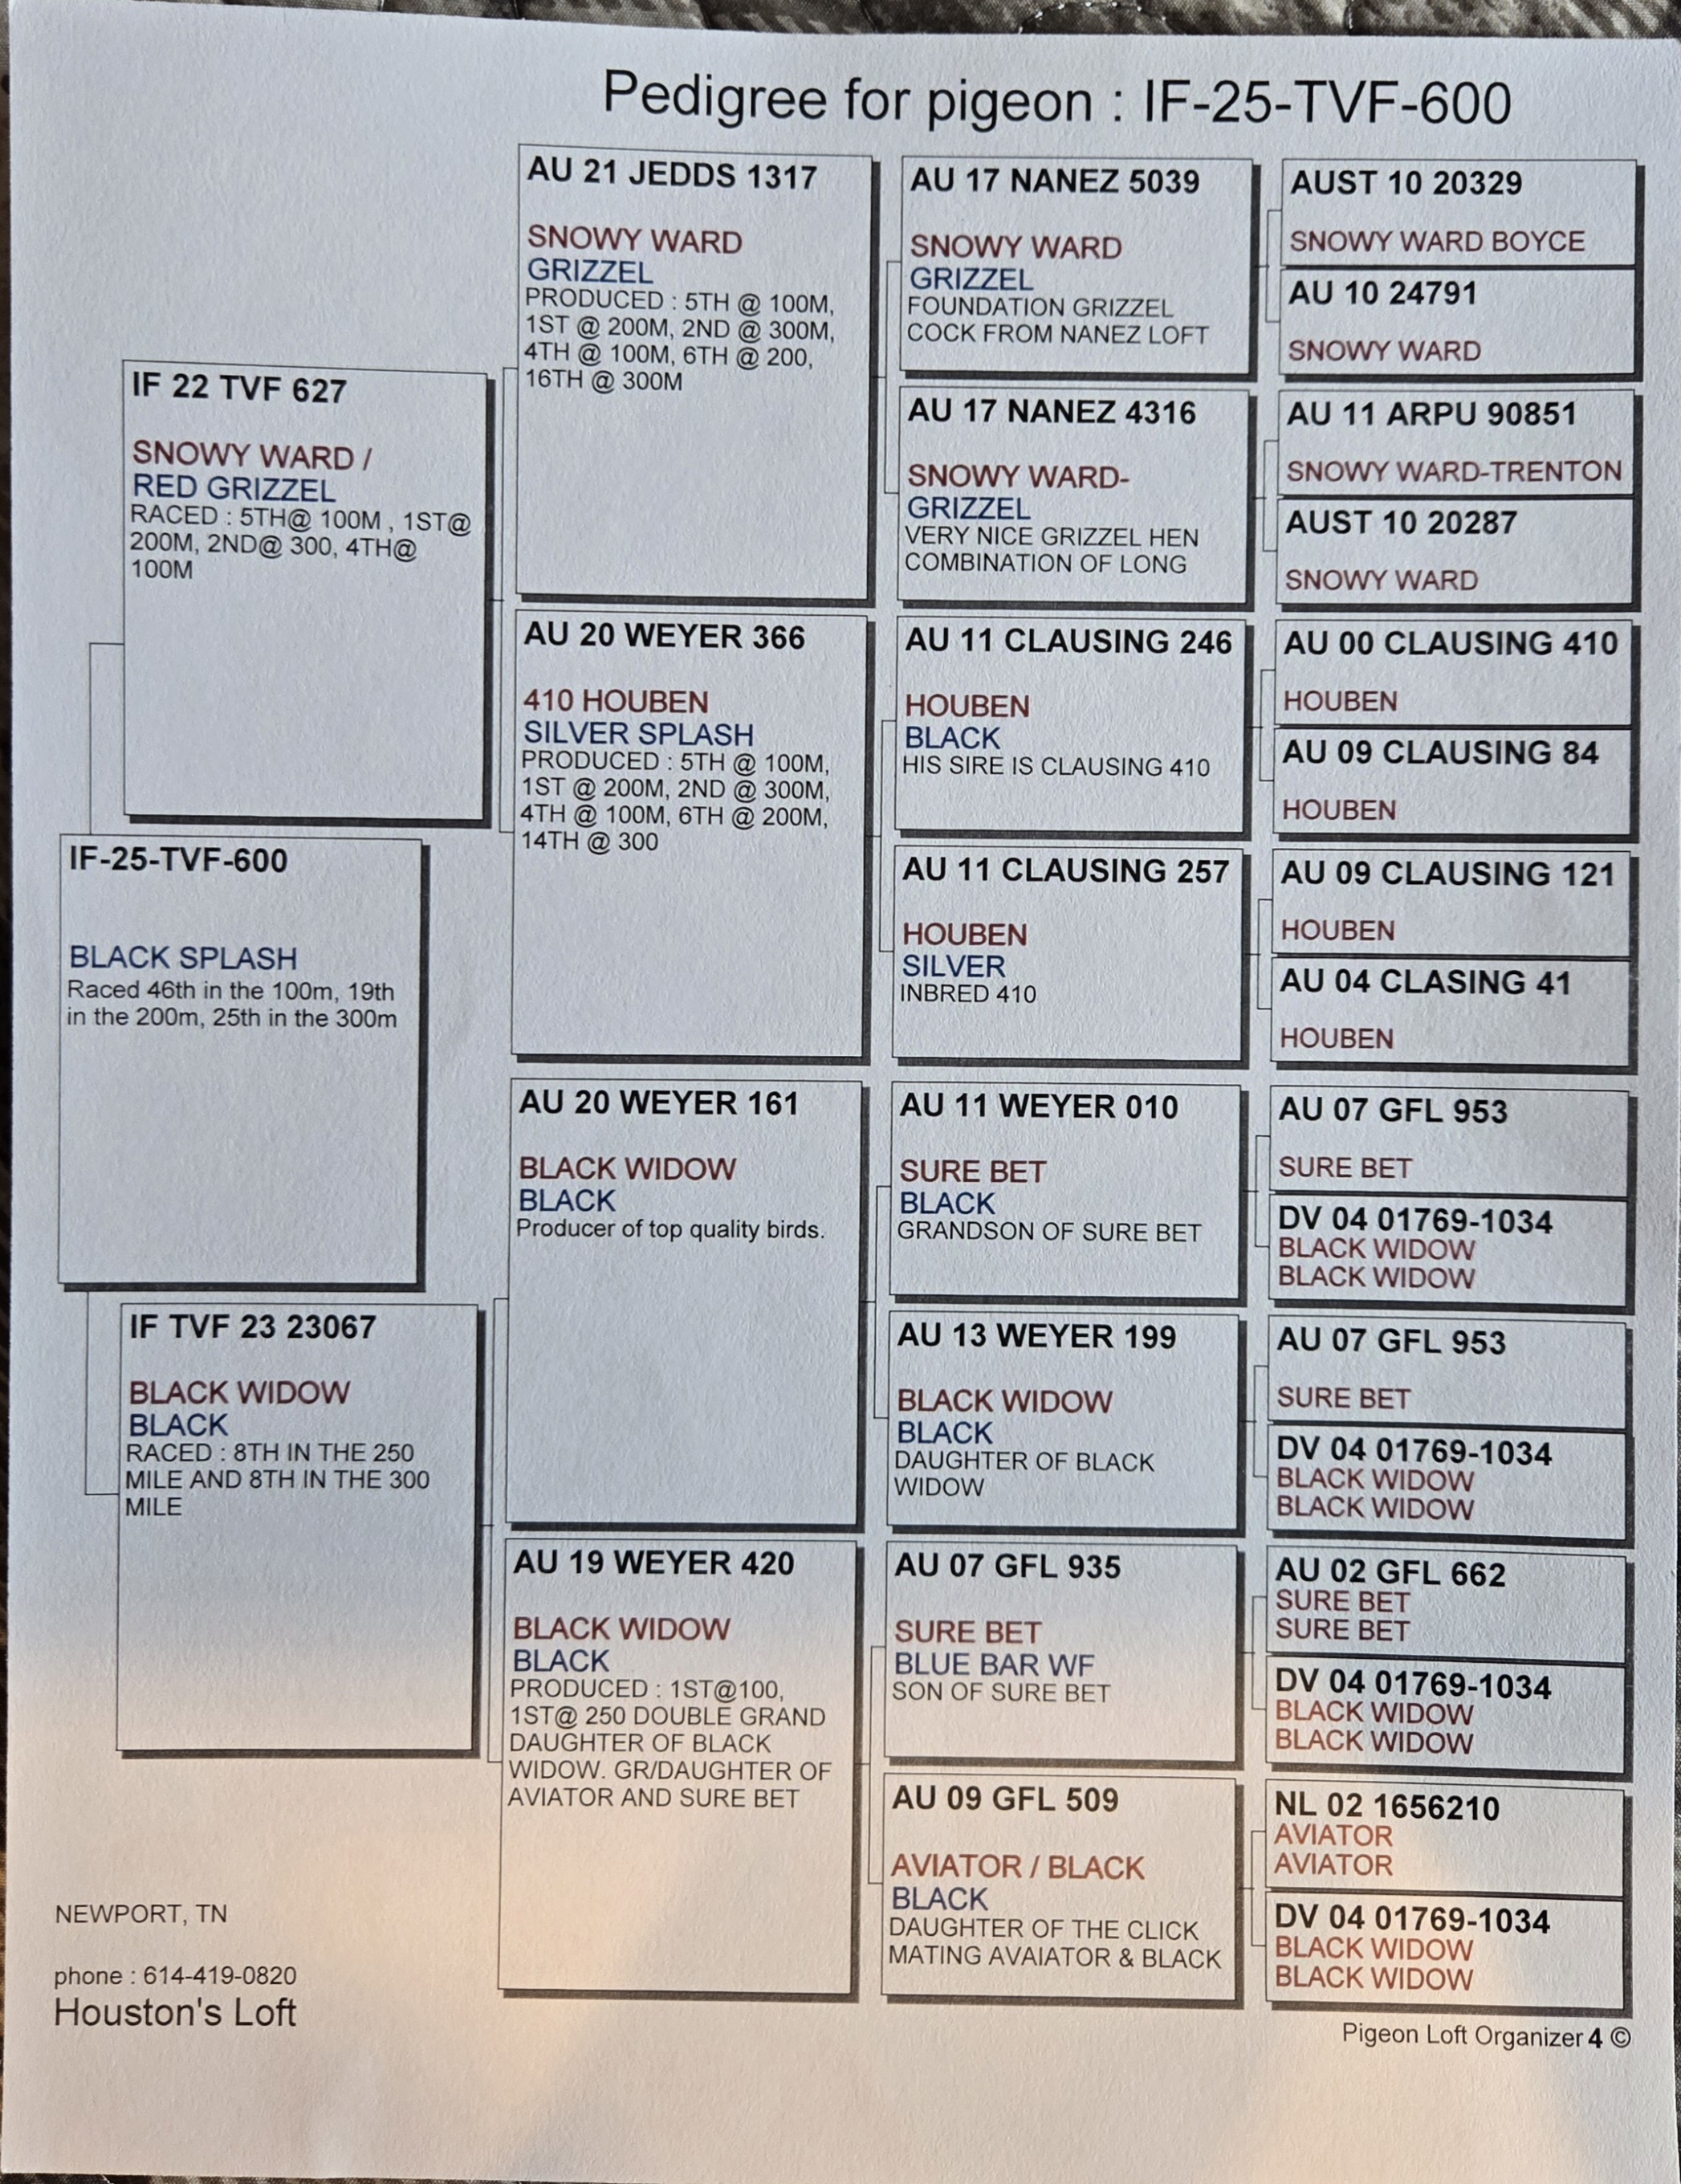 Pedigree for pigeon : IF-25-TVF-600
IF-25-TVF-600
BLACK SPLASH
Raced 46th in the 100m, 19th
in the 200m, 25th in the 300m
IF 22 TVF 627
SNOWY WARD /
RED GRIZZEL
RACED : 5TH@ 100M , 1ST@
200M, 2ND@ 300, 4TH@
100M
IF TVF 23 23067
BLACK WIDOW
BLACK
RACED : 8TH IN THE 250
MILE AND 8TH IN THE 300
MILE
AU 21 JEDDS 1317
SNOWY WARD
GRIZZEL
PRODUCED : 5TH @ 100M,
1ST @ 200M, 2ND @ 300M,
4TH @ 100M, 6TH @ 200,
16TH @ 300M
AU 20 WEYER 366
410 HOUBEN
SILVER SPLASH
PRODUCED : 5TH @ 100M,
1ST @ 200M, 2ND @ 300M,
4TH @ 100M, 6TH @ 200M,
14TH @ 300
AU 20 WEYER 161
BLACK WIDOW
BLACK
Producer of top quality birds.
AU 19 WEYER 420
BLACK WIDOW
BLACK
PRODUCED : 1ST@100,
1ST@ 250 DOUBLE GRAND
DAUGHTER OF BLACK
WIDOW. GR/DAUGHTER OF
AVIATOR AND SURE BET
AU 17 NANEZ 5039
SNOWY WARD
GRIZZEL
FOUNDATION GRIZZEL
COCK FROM NANEZ LOFT
AU 17 NANEZ 4316
SNOWY WARD-
GRIZZEL
VERY NICE GRIZZEL HEN
COMBINATION OF LONG
AU 11 CLAUSING 246
HOUBEN
BLACK
HIS SIRE IS CLAUSING 410
AU 11 CLAUSING 257
HOUBEN
SILVER
INBRED 410
AU 11 WEYER 010
SURE BET
BLACK
GRANDSON OF SURE BET
AU 13 WEYER 199
BLACK WIDOW
BLACK
DAUGHTER OF BLACK
WIDOW
AU 07 GFL 935
SURE BET
BLUE BAR WF
SON OF SURE BET
AU 09 GFL 509
AVIATOR / BLACK
BLACK
DAUGHTER OF THE CLICK
MATING AVAIATOR & BLACK
AUST 10 20329
SNOWY WARD BOYCE
AU 10 24791
SNOWY WARD
AU 11 ARPU 90851
SNOWY WARD-TRENTON
AUST 10 20287
SNOWY WARD
AU 00 CLAUSING 410
HOUBEN
AU 09 CLAUSING 84
HOUBEN
AU 09 CLAUSING 121
HOUBEN
AU 04 CLASING 41
HOUBEN
AU 07 GFL 953
SURE BET
DV 04 01769-1034
BLACK WIDOW
BLACK WIDOW
AU 07 GFL 953
SURE BET
DV 04 01769-1034
BLACK WIDOW
BLACK WIDOW
AU 02 GFL 662
SURE BET
SURE BET
DV 04 01769-1034
BLACK WIDOW
BLACK WIDOW
NL 02 1656210
AVIATOR
AVIATOR
DV 04 01769-1034
BLACK WIDOW
BLACK WIDOW
NEWPORT, TN
phone : 614-419-0820
Houston's Loft
Pigeon Loft Organizer 4 ©